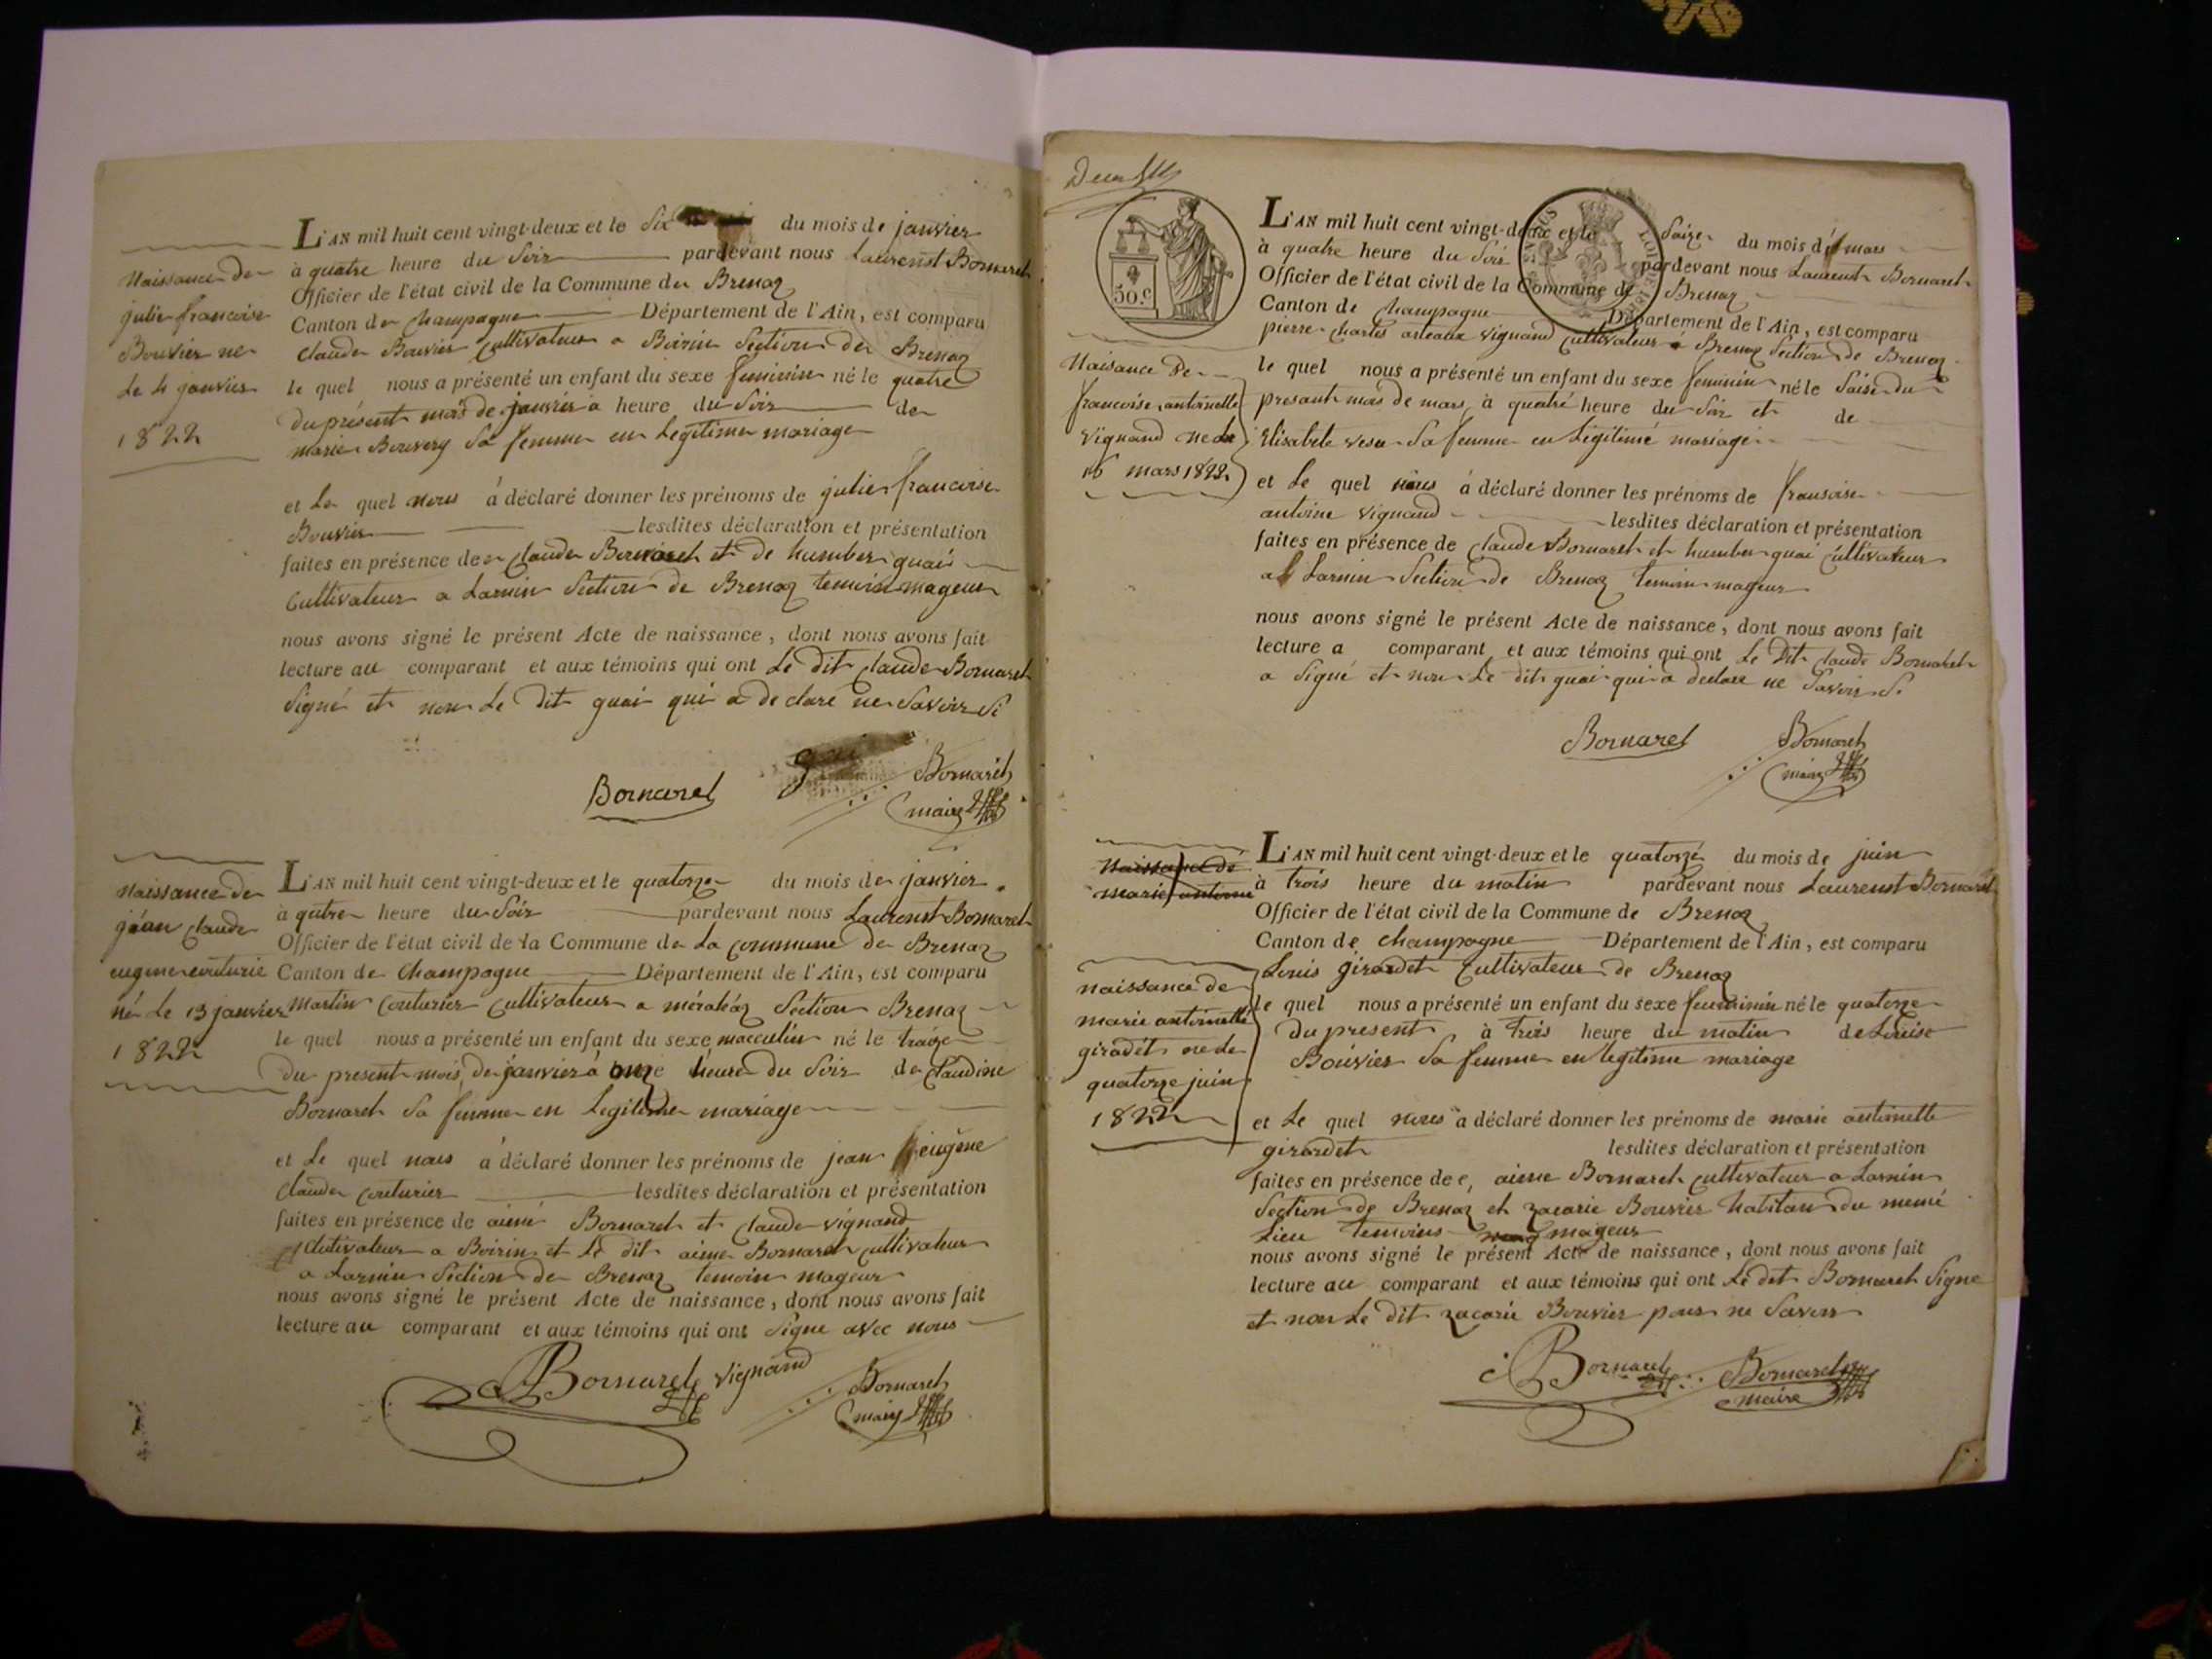 Naissance de
julie francoise
Bouvier ne
Le 4 janvier
1822
L'AN mil huit cent vingt-deux et le Six du mois de janvier
à quatre heure du Soir pardevant nous Laurenst Bornaret
Officier de l'état civil de la Commune de Brenaz
Canton de Champagne Département de l'Ain, est comparu
claude Bouvier Cultivateur a Boirin Section de Brenaz
le quel nous a présenté un enfant du sexe feminin né le quatre
du présent mois de janvier a heure du Soir de
marie Bouvery Sa femme en Legitime mariage
et Le quel nous à déclaré donner les prénoms de julie francoise
Bouvier lesdites déclaration et présentation
faites en présence de claude Bornaret et de humber quai
Cultivateur a Larnin Section de Brenaz temoins mageur
nous avons signé le présent Acte de naissance, dont nous avons fait
lecture au comparant et aux témoins qui ont Le dit claude Bornaret
Signé et non Le Dit quai qui a de claré ne Savoir Si
Bornarel Bornaret
maire
Naissance de
jéan claude
eugene couturie
né Le 13 janvier
1822
L'AN mil huit cent vingt-deux et le quatorze du mois de janvier
à qutre heure du Soir pardevant nous Laurenst Bornaret
Officier de l'état civil de la Commune de La commune de Brenaz
Canton de Champagne Département de l'Ain, est comparu
Martin Couturier Cultivateur a méraléaz Section Brenaz
le quel nous a présenté un enfant du sexe macculin né le traize
Du present mois de janvier à onze heure du Soir de Claudine
Bornaret Sa femme en Legitime mariage
et Le quel nous à déclaré donner les prénoms de jean eugène
Claude Couturier lesdites déclaration et présentation
faites en présence de aimé Bornaret et Claude vignand
Cultivateur a Boirin et Le dit aime Bornaret cultivateur
a Larnin Section de Brenaz temoin mageur
nous avons signé le présent Acte de naissance, dont nous avons fait
lecture au comparant et aux témoins qui ont Signe avec nous
Bornarel vignand Bornaret
maire
50.c
Naisance De
francoise antoinette
vignand ne le
16 mars 1822
L'AN mil huit cent vingt-deux et le Saize du mois de mars
à quatre heure du Soir pardevant nous Laurenst Bornaret
Officier de l'état civil de la Commune de Brenaz
Canton de Champagne Département de l'Ain, est comparu
pierre charles vignand Cultivateur a Brenaz Section de Brenaz
le quel nous a présenté un enfant du sexe feminin né le Saise du
presant mois de mars à quatre heure du Soir et de
Elisabete Sa femme en Légitimé mariage
et Le quel nous à déclaré donner les prénoms de fransoise
antoine vignand lesdites déclaration et présentation
faites en présence de Claude Bornaret et humber quai Cultivateur
a Larnin Section de Brenaz temoin mageur
nous avons signé le présent Acte de naissance, dont nous avons fait
lecture a comparant et aux témoins qui ont Le Dit claude Bornaret
a Signé et non Le dit quai qui a declare ne Savoir Si
Bornarel Bornaret
maire
Naissance de
marie antoine
naissance de
marie antoinette
giradet ne le
quatorze juin
1822
L'AN mil huit cent vingt-deux et le quatorze du mois de juin
à trois heure du matin pardevant nous Laurenst Bornaret
Officier de l'état civil de la Commune de Brenaz
Canton de Champagne Département de l'Ain, est comparu
Louis girardet Cultivateur de Brenaz
le quel nous a présenté un enfant du sexe feminin né le quatorze
Du present à trois heure du matin de Louise
Bouvier Sa femme en legitime mariage
et Le quel nous a déclaré donner les prénoms de marie antoinette
girardet lesdites déclaration et présentation
faites en présence de aime Bornaret cultivateur a Larnin
Section de Brenaz et zacarie Bouvier habitan du memé
Lieu temoins mageur
nous avons signé le présent Acte de naissance, dont nous avons fait
lecture au comparant et aux témoins qui ont Le dit Bornaret Signe
et non Le dit zacarie Bouvier pour ne Savoir
Bornarel Bornaret
maire